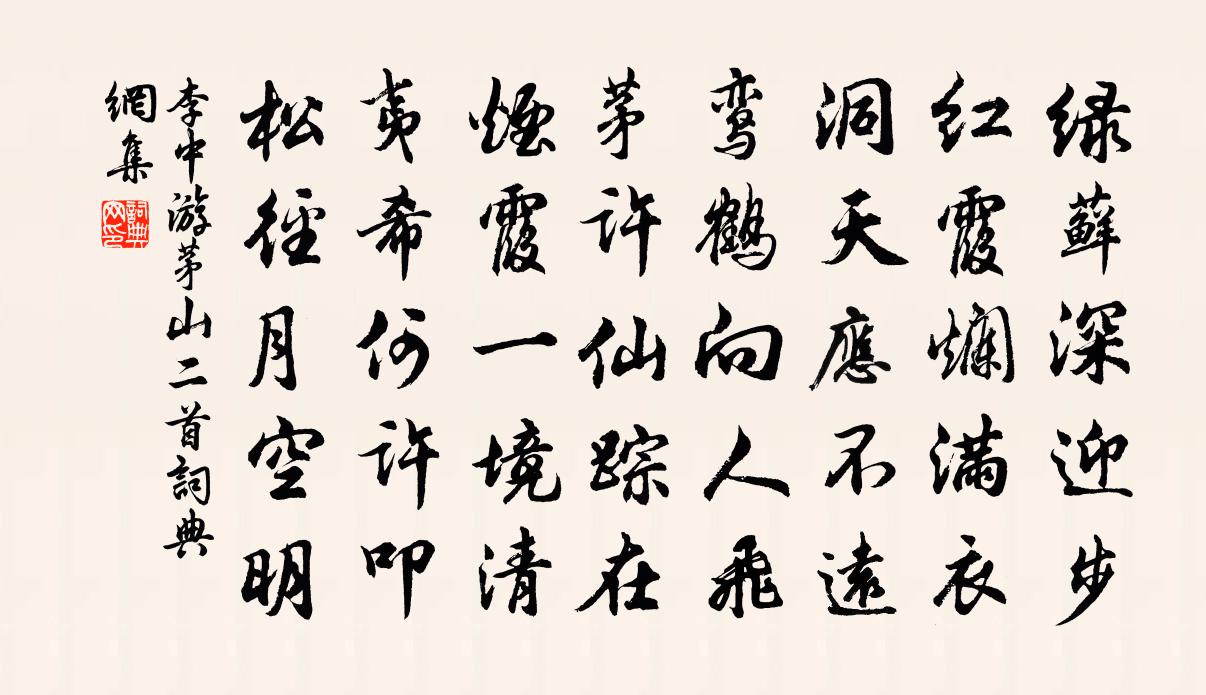 绿藓深迎步
红霞烂满衣
洞天應不遠
鸾鶴向人飛
茅许仙踪在
煙霞一境清
夷希何许叩
松径月空明
李中游茅山二首詞典
網集
詞典
网印